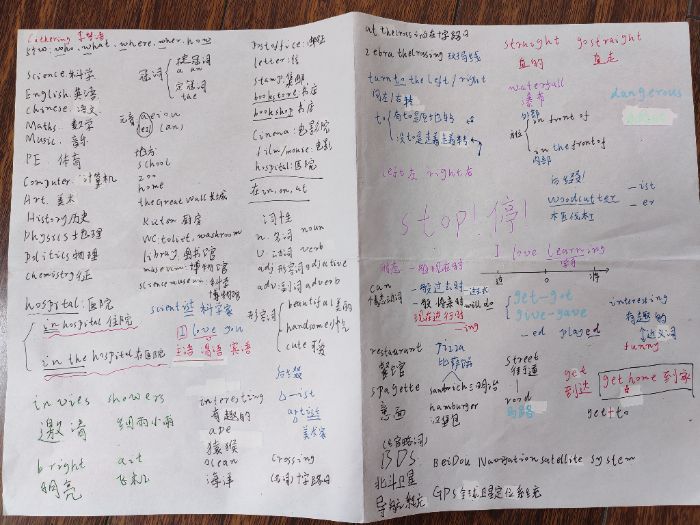 Cathering
5个w. who. what. where. when. how
science.科学
English.英语
chinese.语文
Maths.数学
Music.音乐
PE.体育
Computer.计算机
Art.美术
History.历史
Physics.物理
Politics
chemistry
hospital:医院
in hospital 住院
in the hospital 在医院
invies showers
邀请 阵雨小雨
bright
明亮 飞机
冠词
a an
定冠词
the
元音
地方
school
zoo
home
the Great Wall 长城
厨房
WC. toliet. washroom
图书馆
museum:博物馆
science museum:科学
博物馆
scientist 科学家
I love you
主语 谓语 宾语
interesting
有趣的
ape
猿猴
ocean
海洋
Post office:邮局
letter:信
stamp 集邮
bookstore 书店
bookshop 书店
Cinema:电影院
film/movie:电影
hospital:医院
在in,on,at
词性
n.名词 noun
v.动词 verb
adj.形容词 adjective
adv.副词 adverb
形容词
beautiful 美的
handsome 帅气
cute 可爱
后缀
-ist
美术家
crossing
(名词)十字路口
at the crossing 在十字路口
zebra the crossing 斑马线
turn to the left/right
向左/右转
to
left 左 right 右
straight go straight
直的 直走
waterfall
瀑布
dangerous
外部
in front of
in the front of
内部
stop! 停!
后缀!
woodcutter
木匠伐木工
-ist
-er
I love learning
学习
时态 一般现在时
过 0 将
can
情态动词
一般过去时
一般将来时 will do
现在进行时
-ing
get-got
give-gave
-ed played
interesting
有趣的
近义词
funny
restaurant
餐馆
pizza
比萨饼
spagette
意面
sandwich 三明治
hamburger
汉堡包
street
街道
road
马路
get
到达
get home 到家
get+to
BDS.
BeiDou Navigation satellite System
北斗卫星
导航系统
GPS 全球卫星定位系统